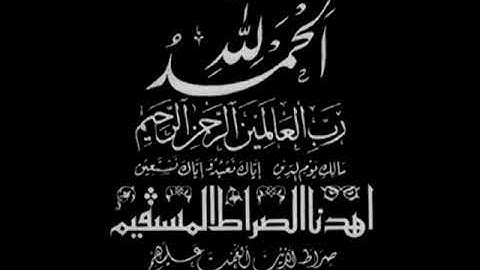 الحمد لله
رب العالمين الرحمن الرحيم
مالك يوم الدين إياك نعبد وإياك نستعين
اهدنا الصراط المستقيم
صراط الذين أنعمت عليهم